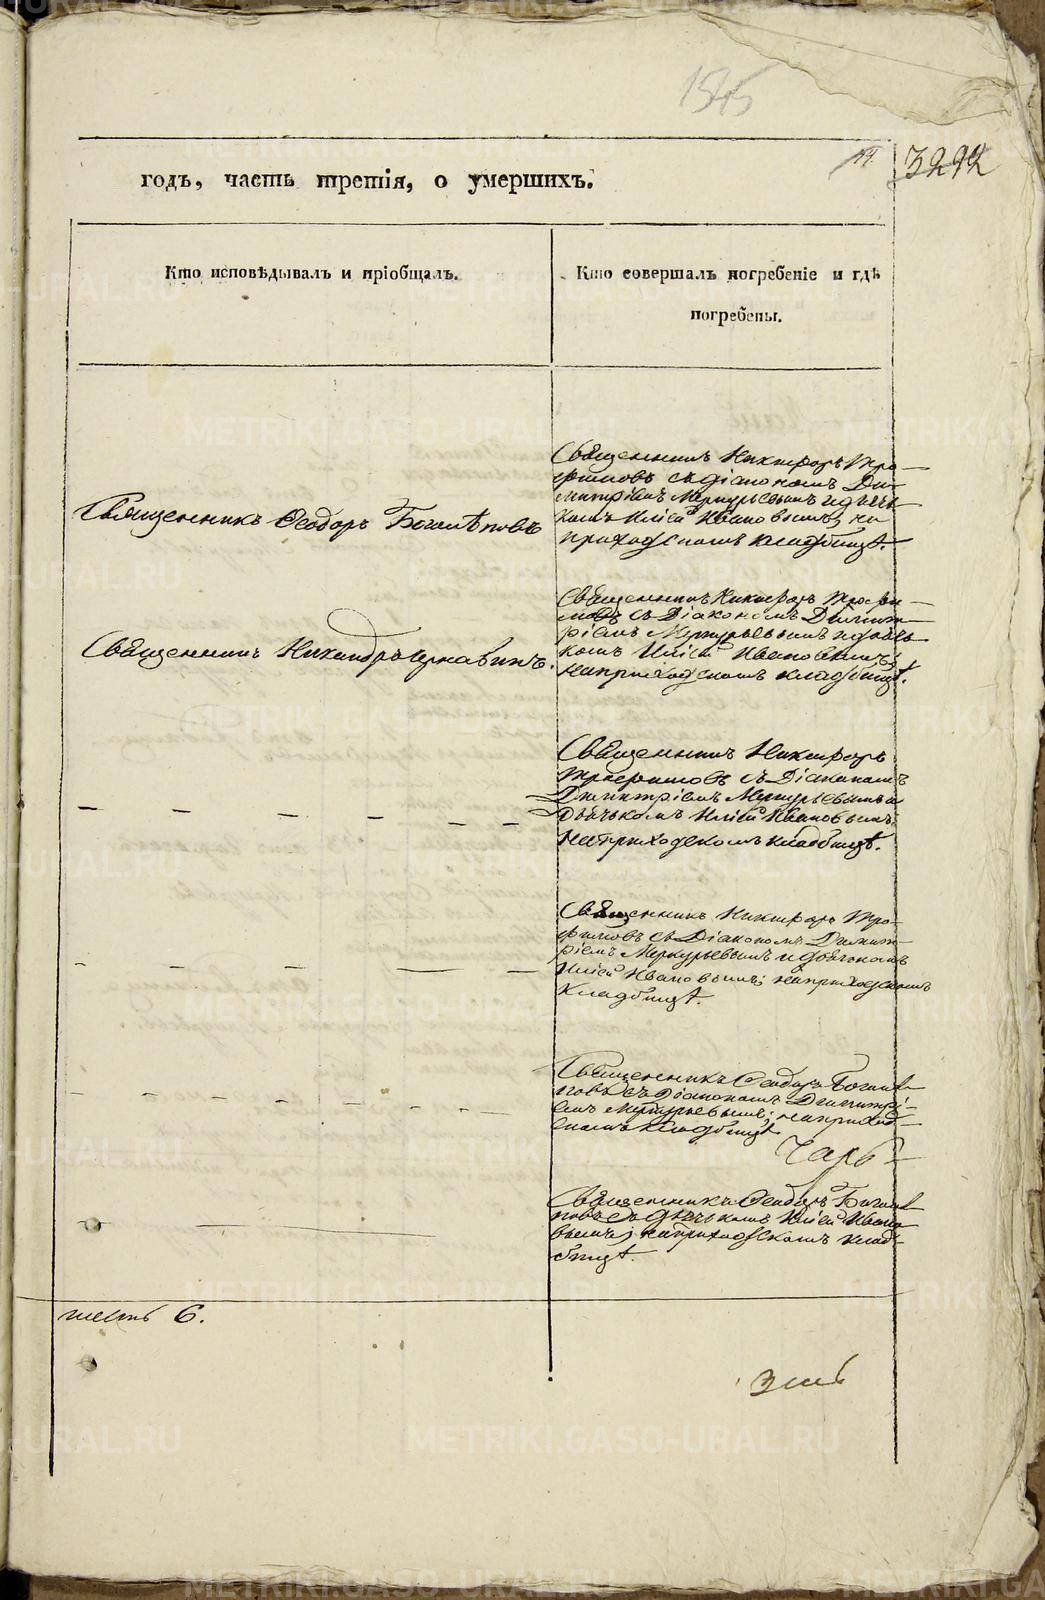 1545
3292
годъ, часть третія, о умершихъ.
Кто исповѣдывалъ и пріобщалъ.
Кто совершалъ погребеніе и гдѣ
погребены.
Священникъ Никифоръ Тро-
фимовъ съ діакономъ Ди-
митріемъ Меркурьевымъ и дьяч-
комъ Иліей Ивановымъ, на
приходскомъ кладбищѣ.
Священникъ Ѳеодоръ Боголѣповъ
Священникъ Никифоръ Трофи-
мовъ съ Діакономъ Димит-
ріемъ Меркурьевымъ и дьяч-
комъ Иліей Ивановымъ;
на приходскомъ кладбищѣ.
Священникъ Никандръ
Священникъ Никифоръ
Трофимовъ съ Діакономъ
Димитріемъ Меркурьевымъ и
Дьячькомъ Иліей Ивановымъ;
на приходскомъ кладбищѣ.
Священникъ Никифоръ Тро-
фимовъ съ Діакономъ Димит-
ріемъ Меркурьевымъ и дьячькомъ
Иліей Ивановымъ; на приходскомъ
Кладбищѣ.
Священникъ Ѳеодоръ Боголѣ-
повъ съ Діакономъ Димитрі-
емъ Меркурьевымъ; на приход-
скомъ кладбищѣ
Священникъ Ѳеодоръ Боголѣ-
повъ съ дьячькомъ Иліей Ивано-
вымъ; на приходскомъ клад-
бищѣ.
шесть 6.
METRIKI.GASO-URAL.RU